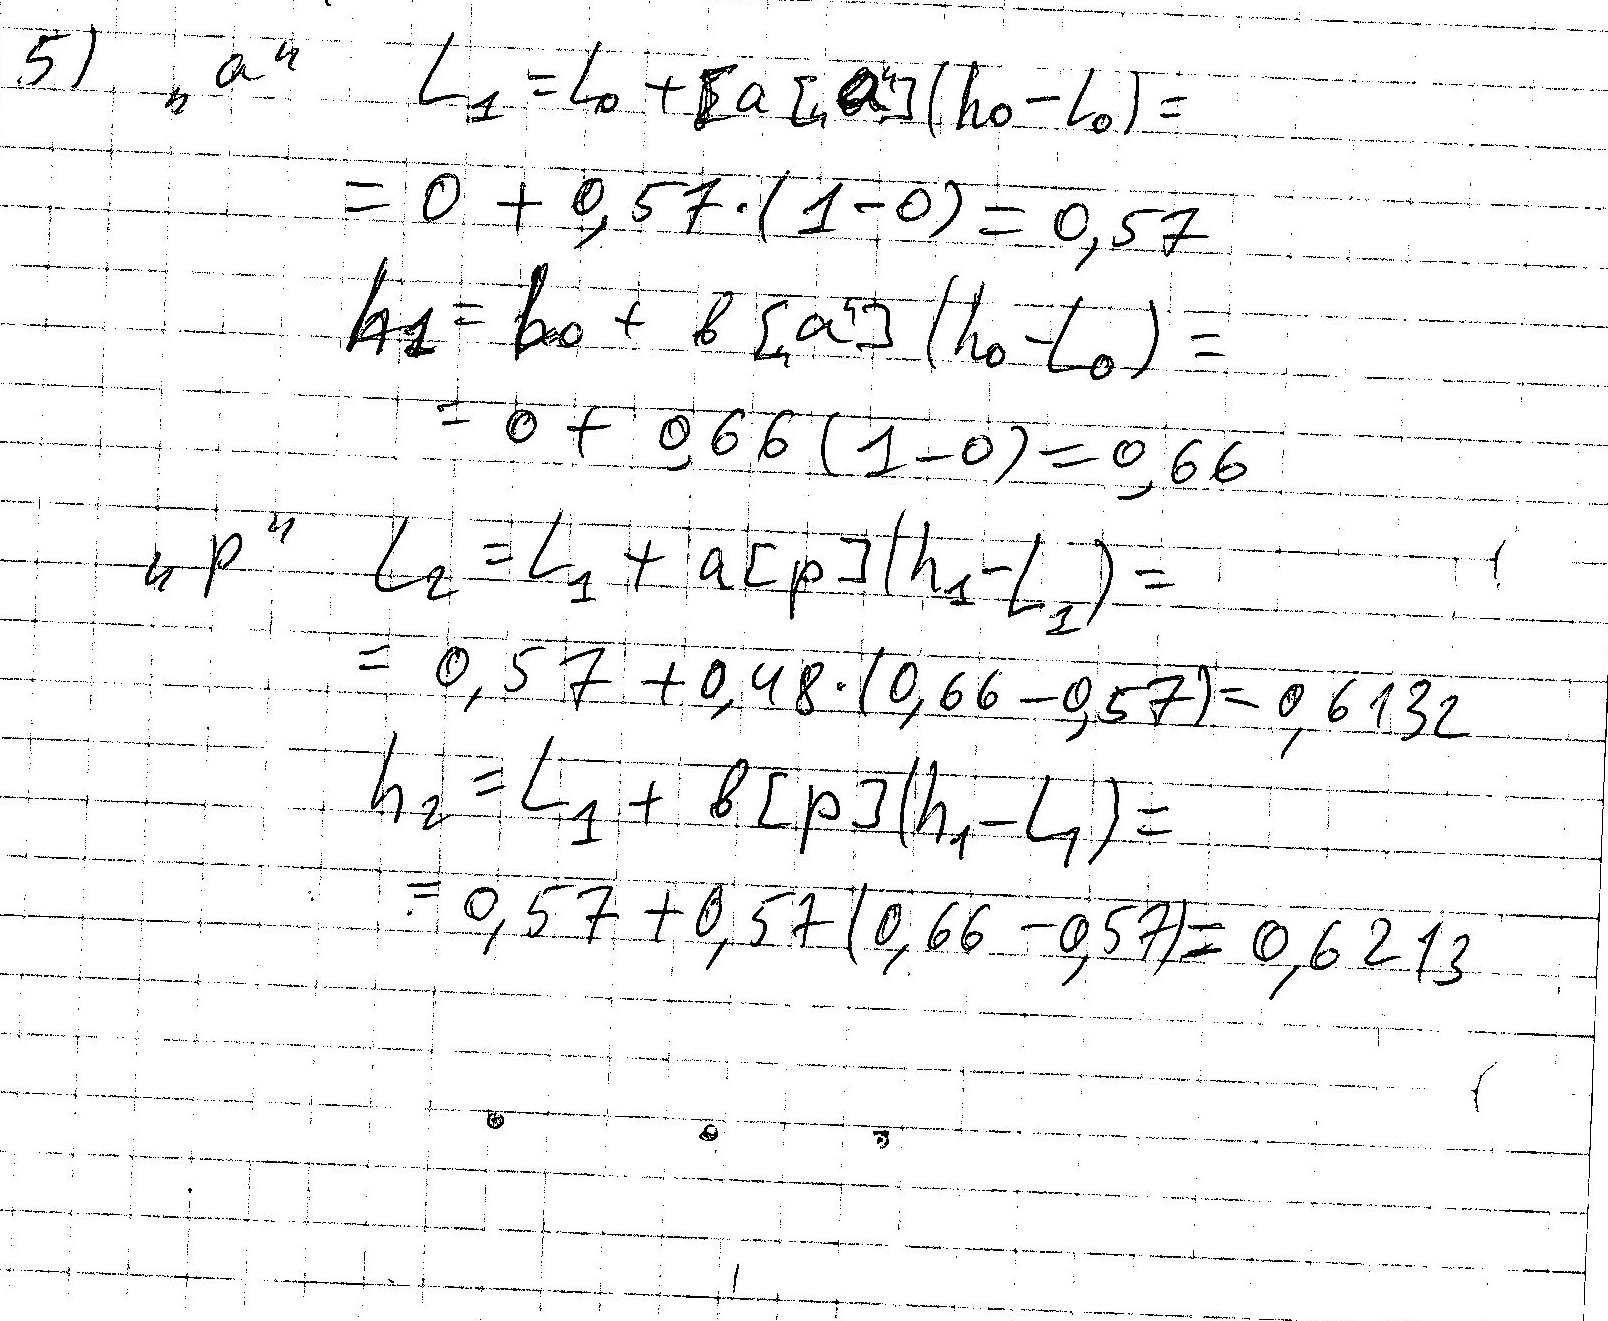 5) „a“ L₁ = L₀ + [a[„a“](h₀ - L₀) =
= 0 + 0,57·(1 - 0) = 0,57
h₁ = h₀ + в[„a“](h₀ - L₀) =
= 0 + 0,66(1 - 0) = 0,66
„p“ L₂ = L₁ + a[p](h₁ - L₁) =
= 0,57 + 0,48·(0,66 - 0,57) = 0,6132
h₂ = L₁ + в[p](h₁ - L₁) =
= 0,57 + 0,57(0,66 - 0,57) = 0,6213